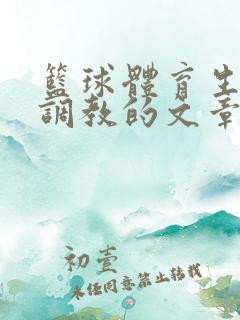 籃球體育生
調教的文章
初壹
未任同意禁止转载